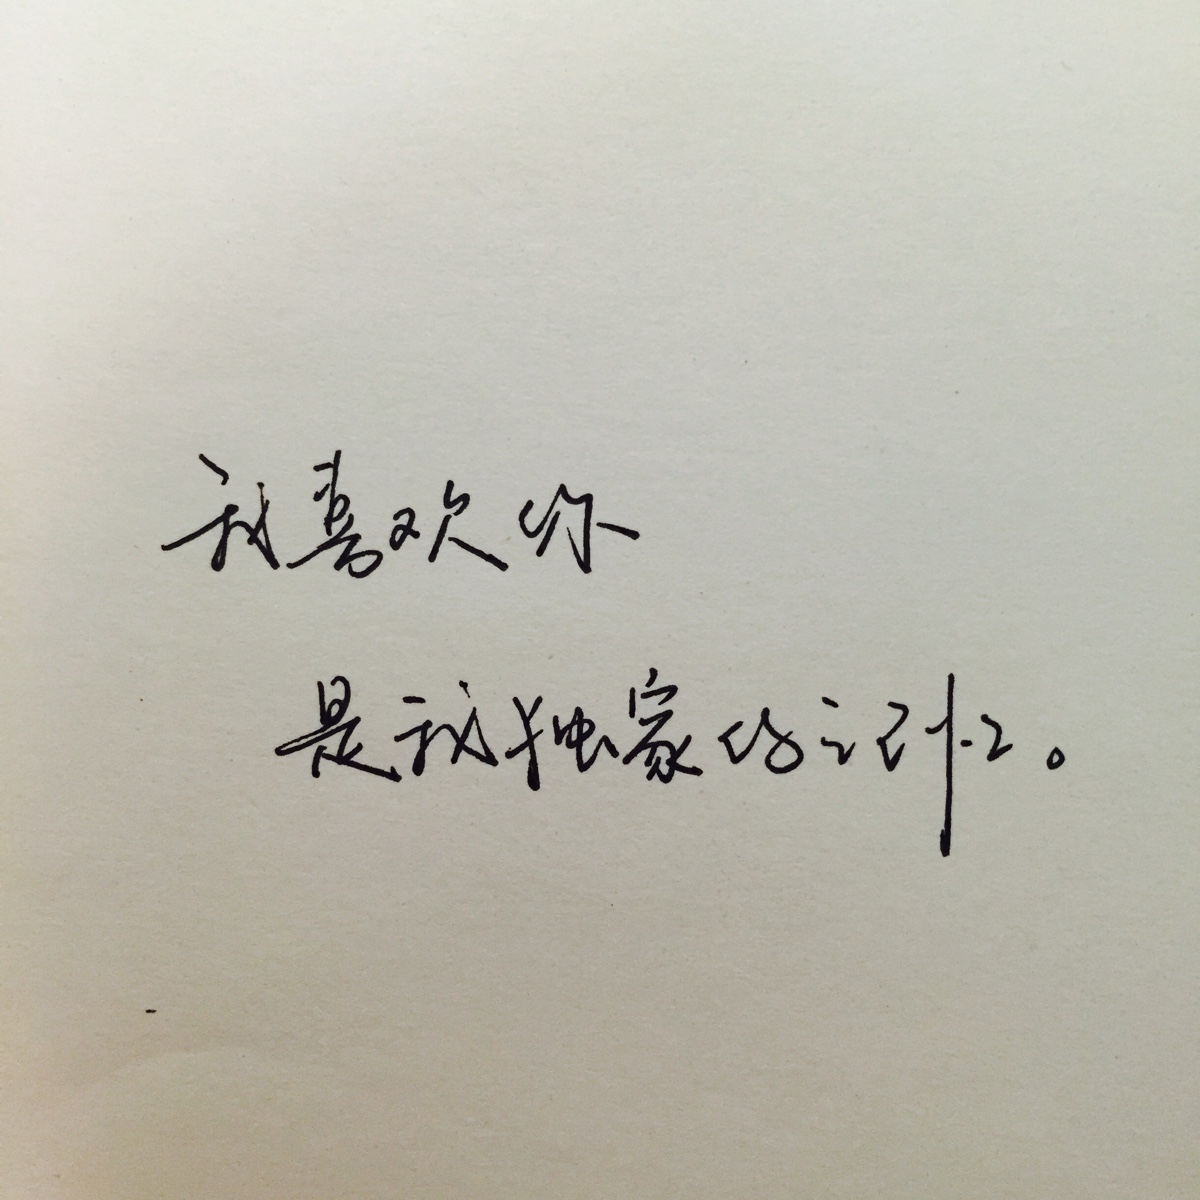 我喜欢你
是我独家的记忆。